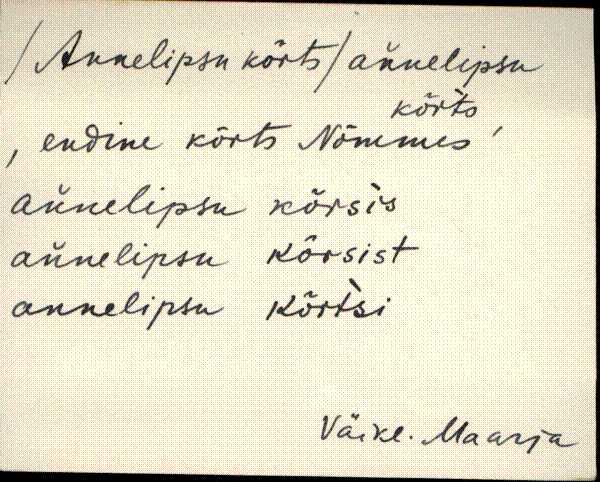 /Annelipsu kõrts/ aǹnelipsu
kõrt̀s
, endine kõrts Nõmmes,
aǹnelipsu kõrsìs
aǹnelipsu kõrsist
annelipsu kõrt̀si
Väike-Maarja